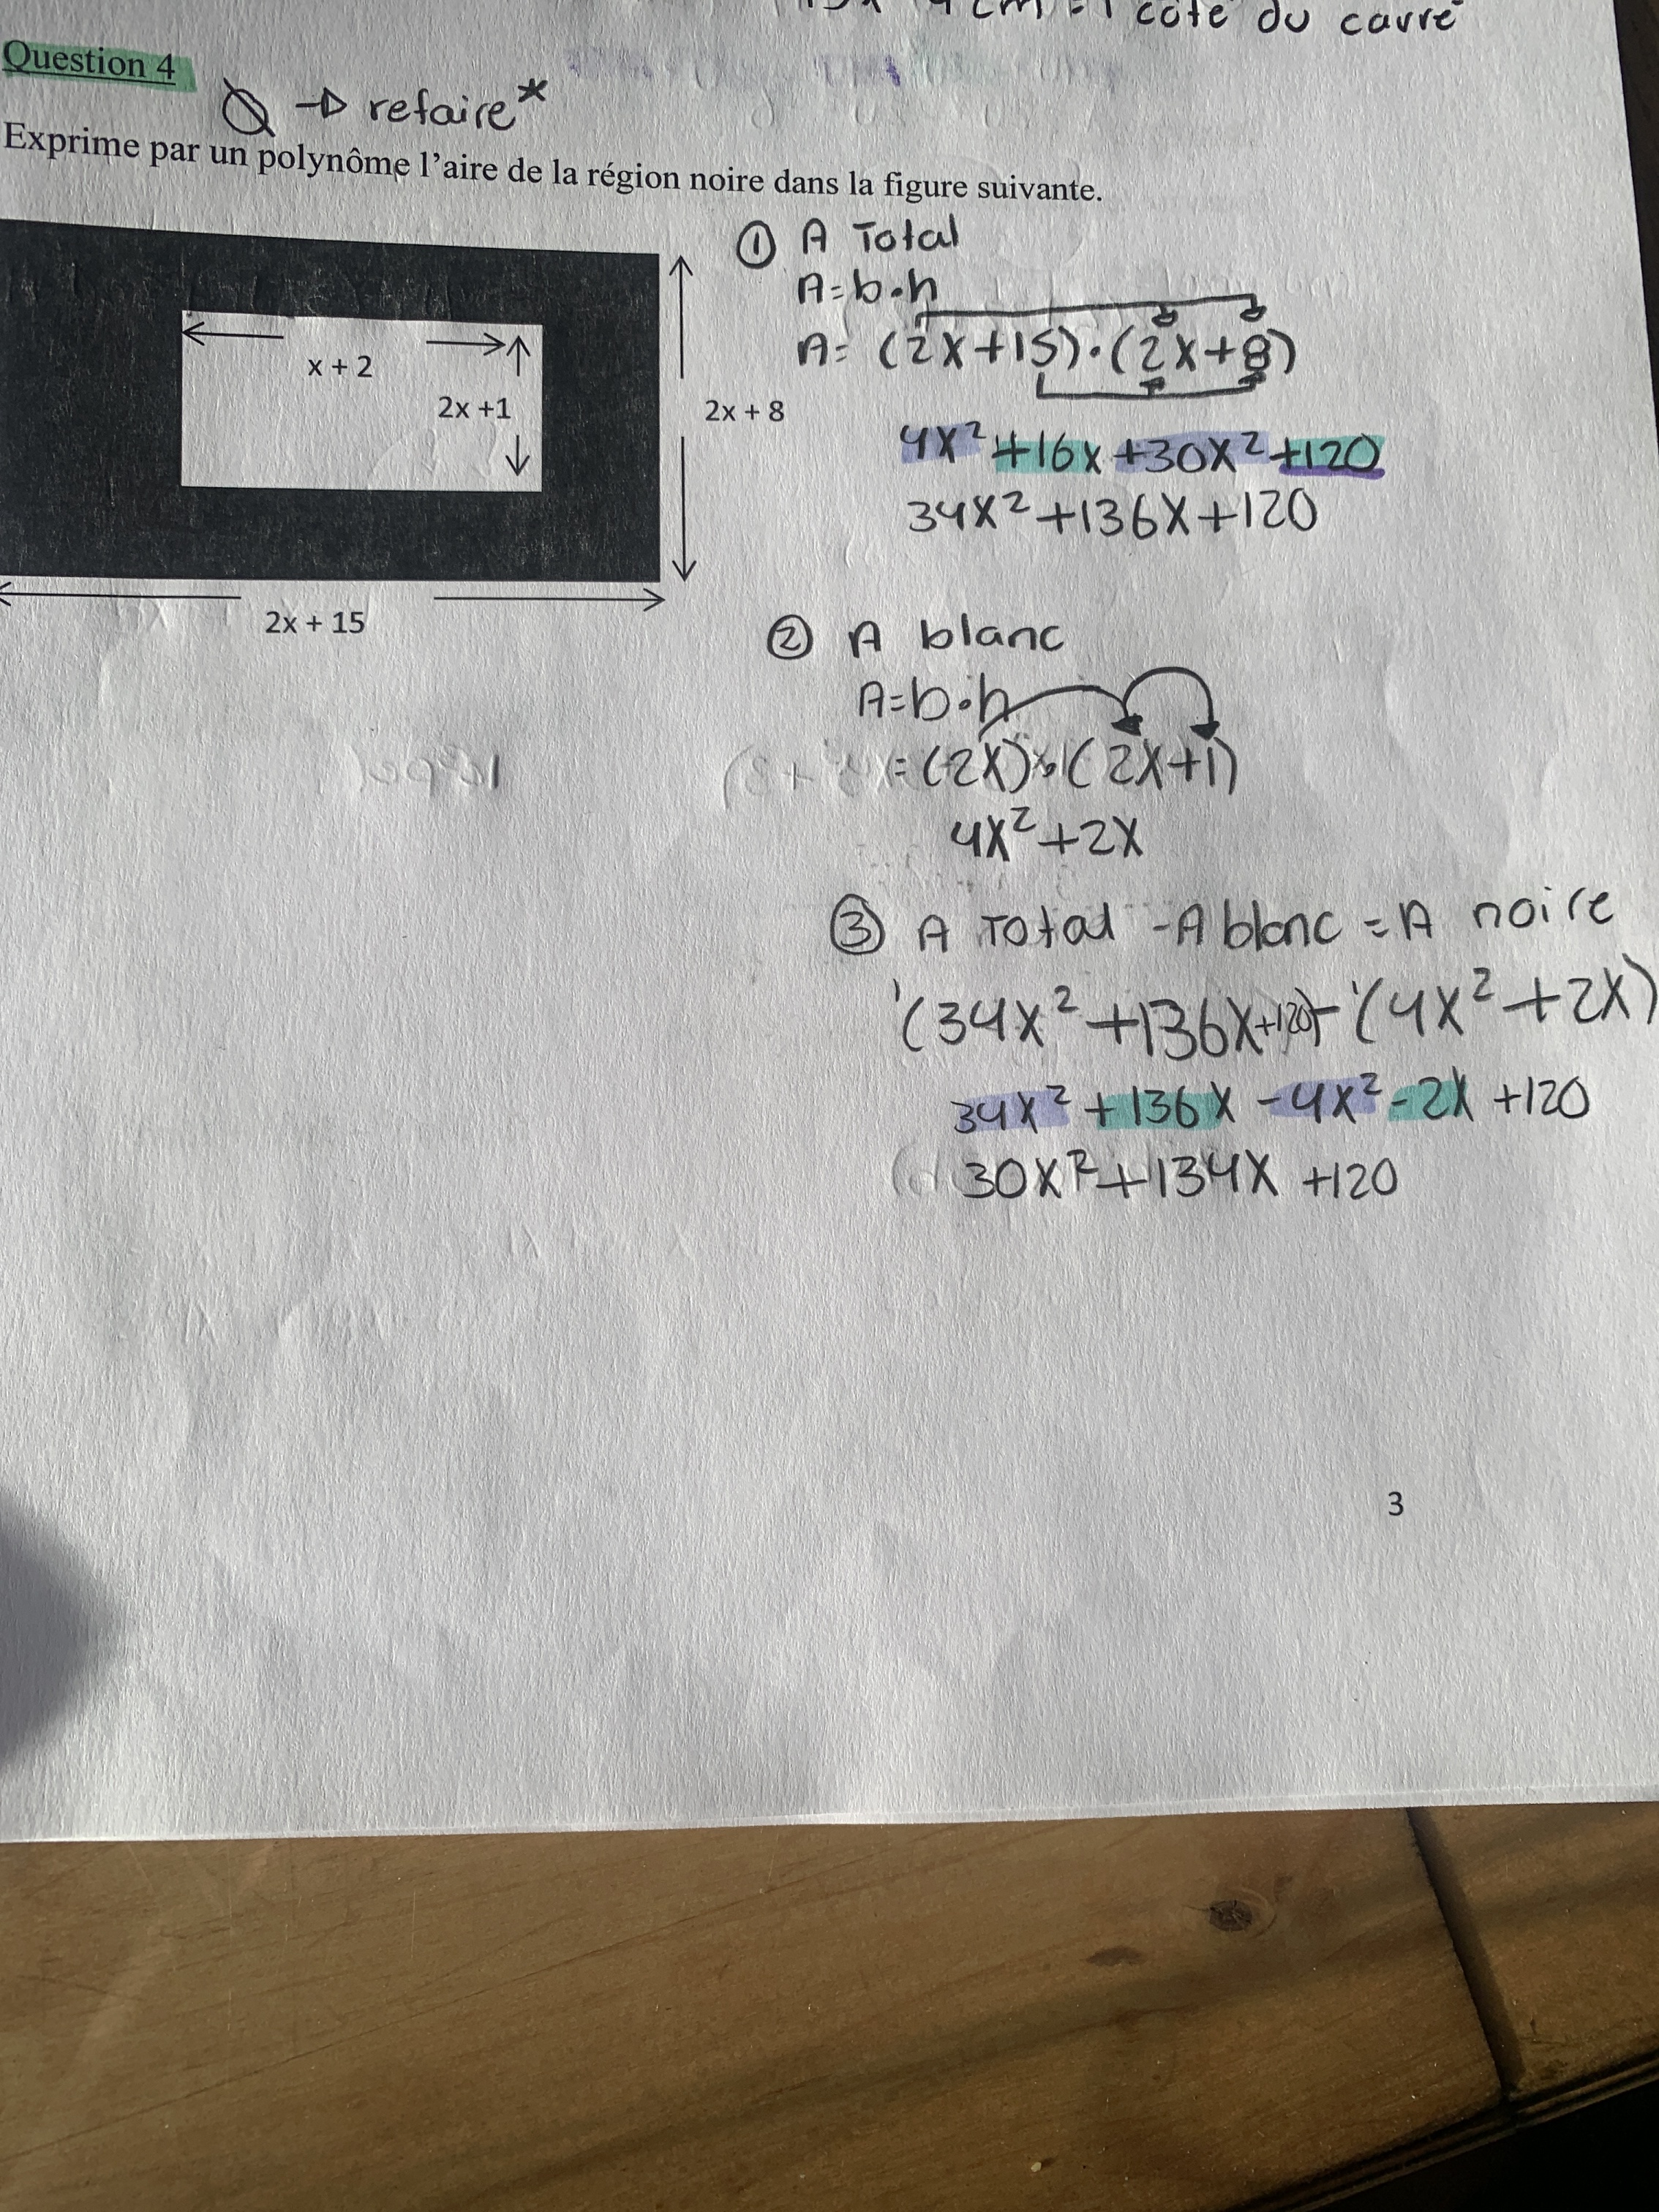 cm = 1 côté du carré
Question 4
→ refaire*
Exprime par un polynôme l'aire de la région noire dans la figure suivante.
x + 2
2x +1
2x + 8
2x + 15
① A Total
A=b•h
A= (2x+15)•(2x+8)
4x²+16x+30x²+120
34x²+136x+120
② A blanc
A=b•h
=(2x)•(2x+1)
4x²+2x
③ A Total -A blanc = A noire
(34x²+136x+120)-(4x²+2x)
34x²+136x-4x²-2x +120
30x²+134x +120
3